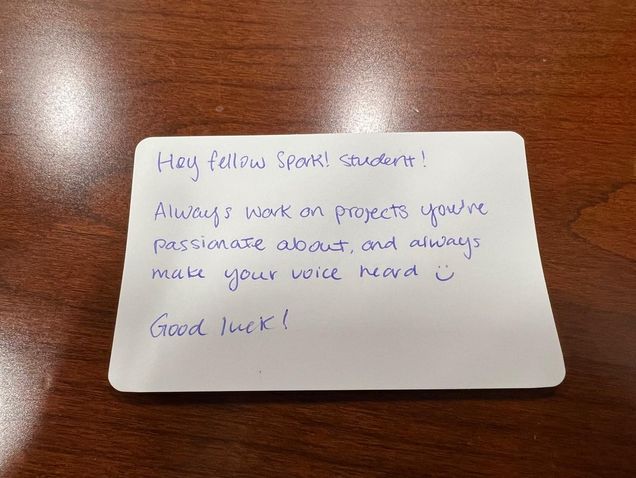 Hey fellow Spark! Student!
Always work on projects you're
passionate about, and always
make your voice heard :)
Good luck!